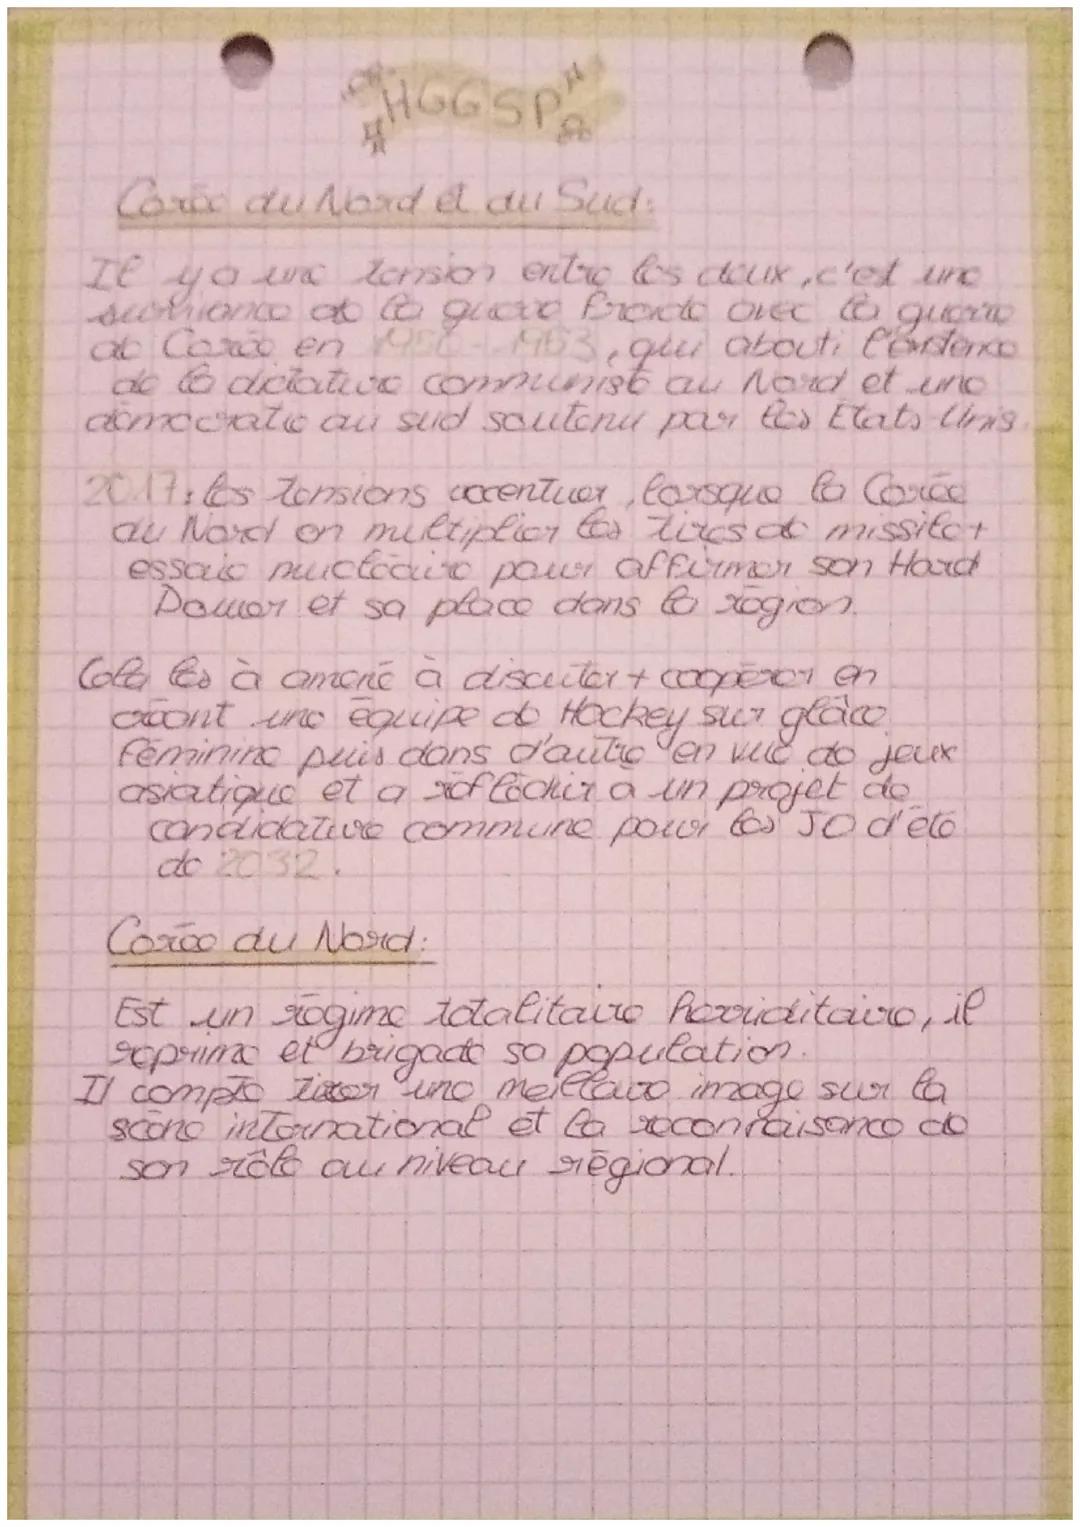 HGGSP
Corée du Nord et du Sud:
Il y a une tension entre les deux, c'est une
survivance de la guerre froide avec la guerre
de Corée en 1950-1953, qui abouti l'existence
de la dictature communiste au Nord et une
démocratie au sud soutenu par les Etats-Unis.
2017: les tensions accentuer, lorsque la Corée
du Nord en multiplier les tires de missile +
essaie nucléaire pour affirmer son Hard
Power et sa place dans la région.
Cela les à amené à discuter + coopérer en
créant une équipe de Hockey sur glâce
féminine puis dans d'autre en vue de jeux
asiatique et a réfléchir a un projet de
candidature commune pour les JO d'été
de 2032.
Corée du Nord:
Est un régime totalitaire herriditaire, il
reprime et brigade sa population.
Il compte tirer une meilleure image sur la
scène international et la reconnaisance de
son rôle au niveau régional.